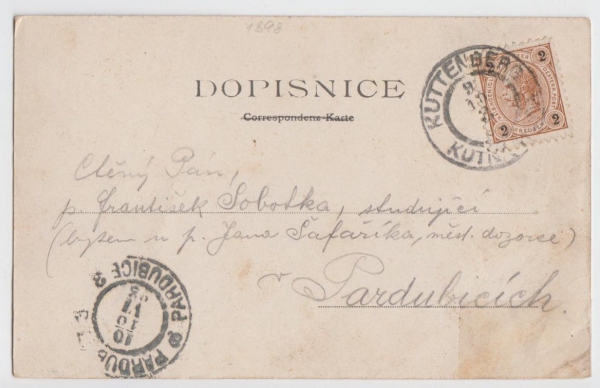 1898
DOPISNICE
Correspondenz-Karte
KUTTENBERG
KUTNÁ
2 2
2 2
Ctěný Pán,
p. František Sobotka, studující
(bytem u p. Jana Šafaříka, měst. dozorce)
v Pardubicích.
PARDUBICE 3
PARDUB
10
10
VI
98